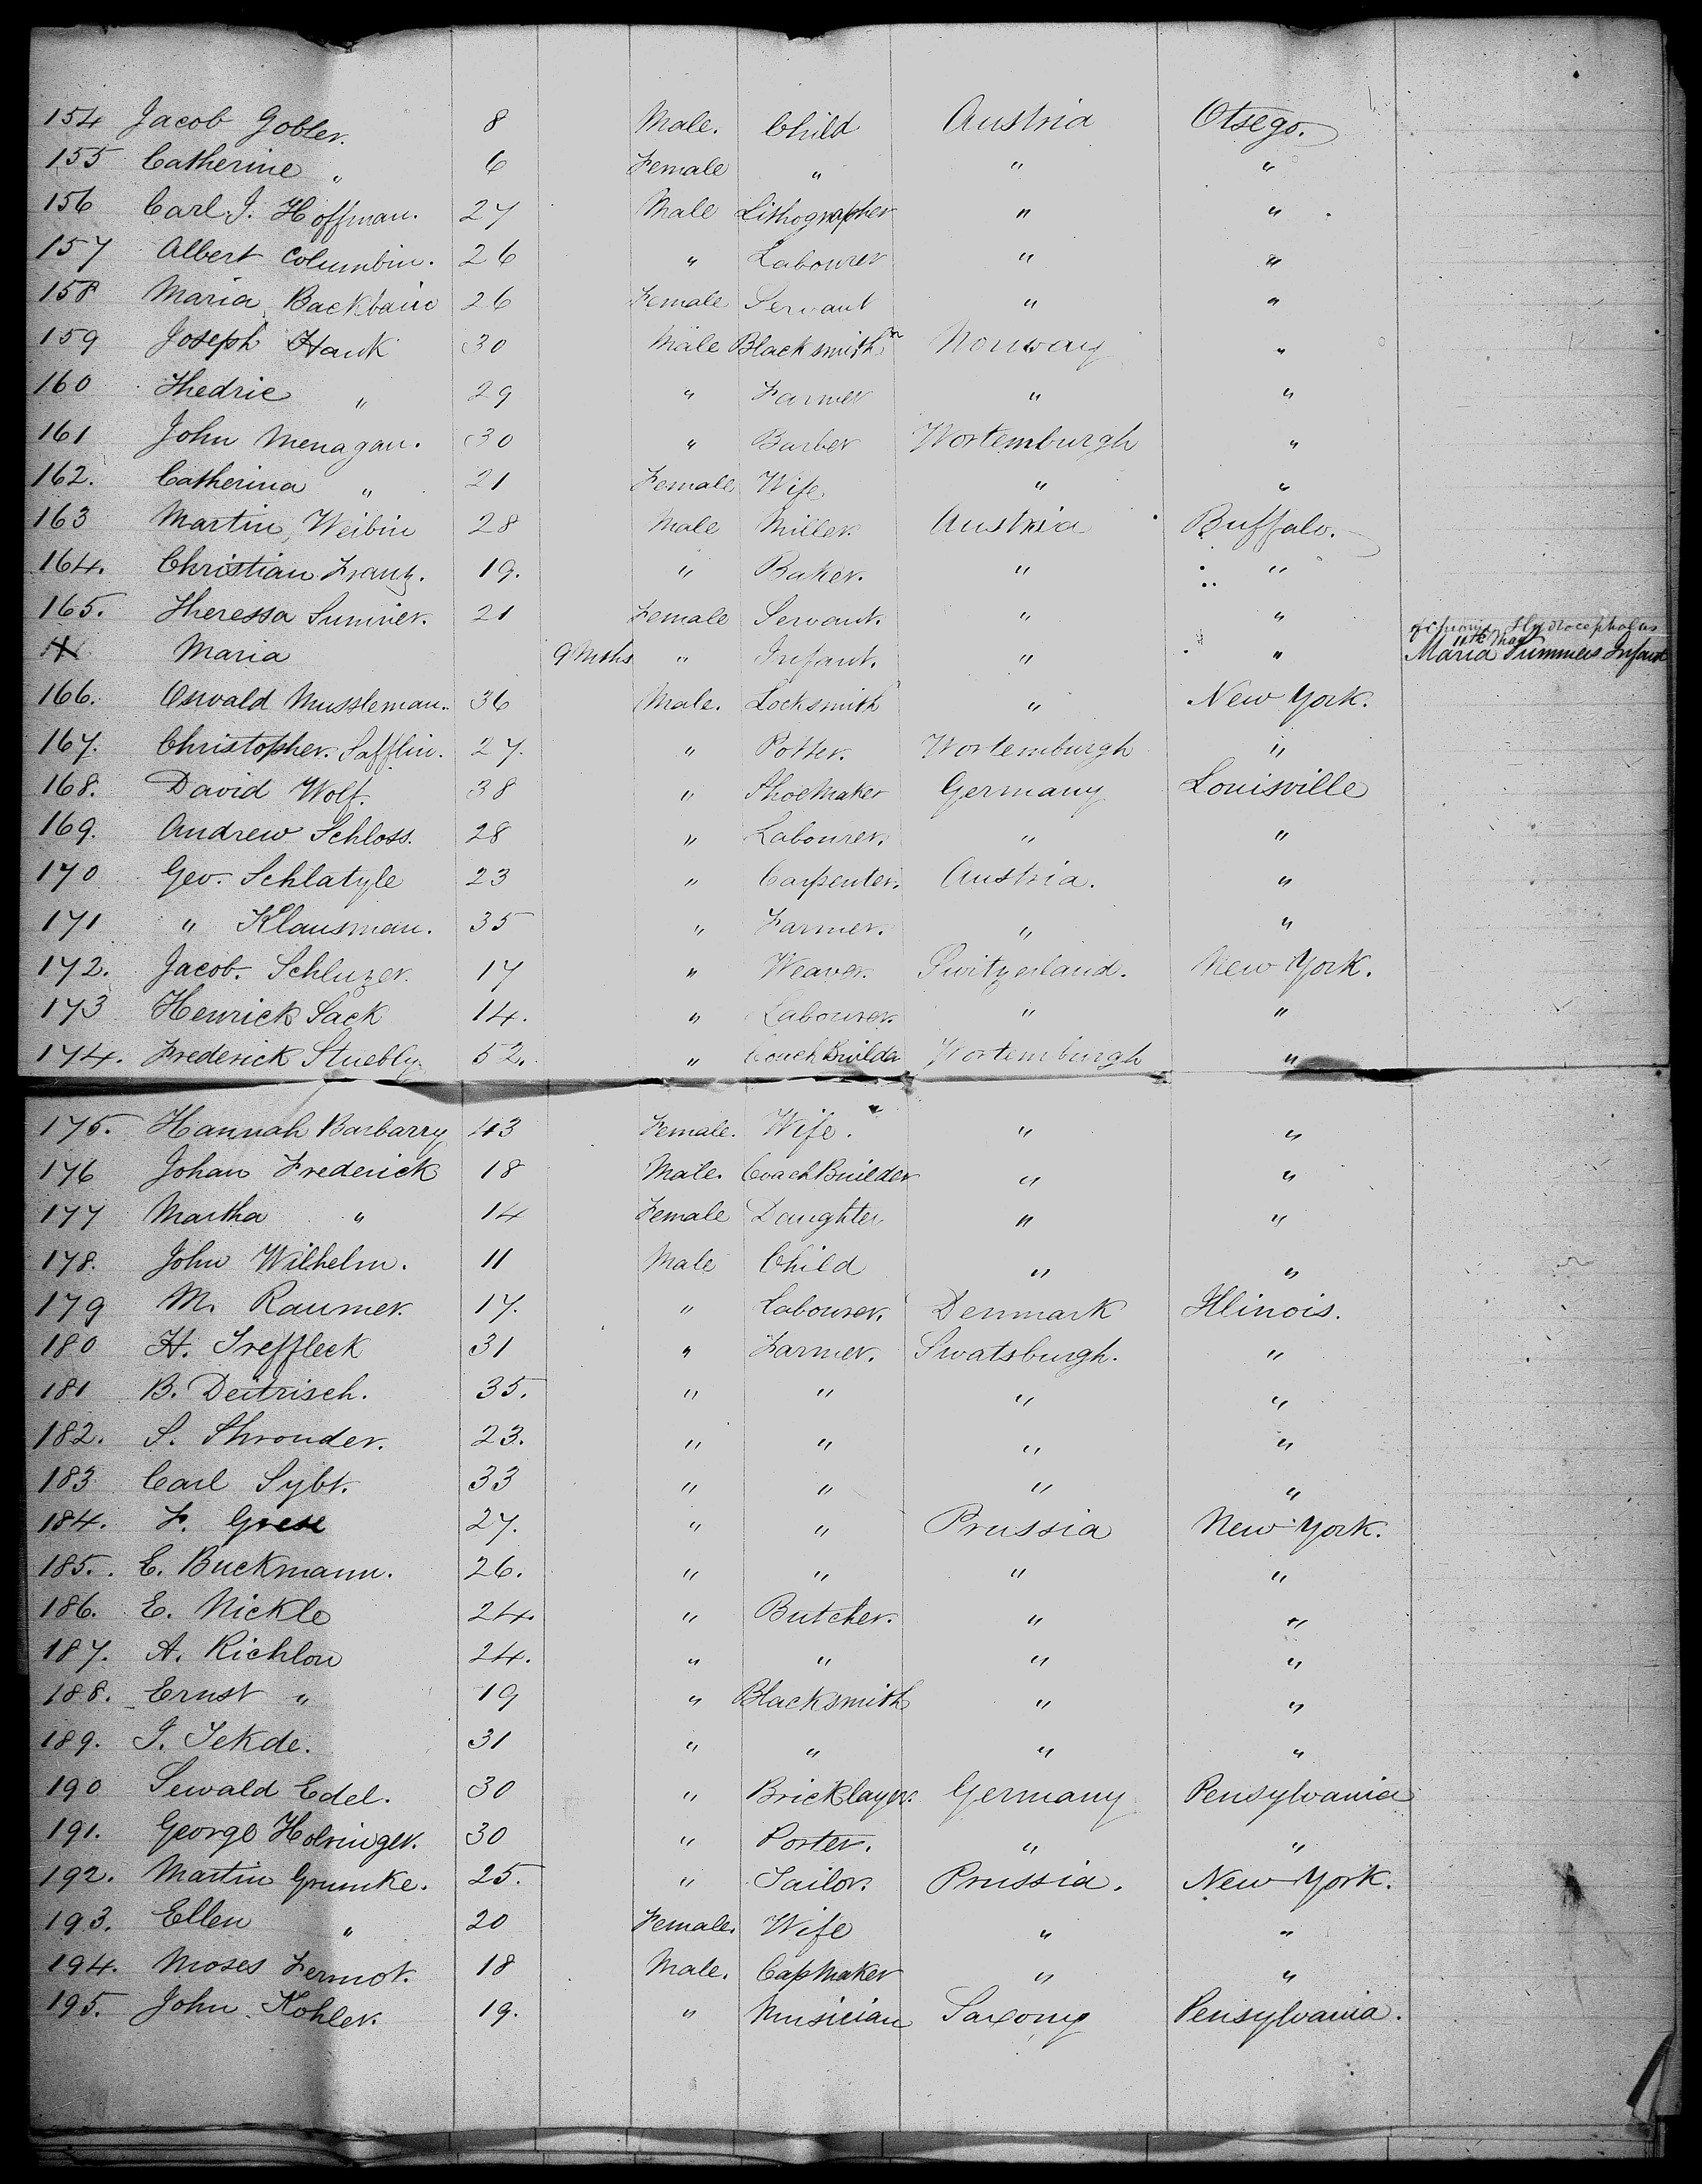 154 Jacob Gobler. 8 Male. Child Austria Otsego.
155 Catherine " 6 Female " " "
156 Carl J. Hoffman. 27 Male Lithographer " "
157 Albert Columbin. 26 " Labourer " "
158 Maria Backbain 26 Female Servant " "
159 Joseph Hauk 30 Male Blacksmith Norway "
160 Thedric " 29 " Farmer " "
161 John Menagan. 30 " Barber Wortemburgh "
162. Catherina " 21 Female Wife " "
163 Martin Weibin 28 Male Miller Austria Buffalo.
164. Christian Franz. 19. " Baker. " "
165. Theressa Sumner. 21 Female Servant. " "
Hydrocephalus
11th May
Maria 9 Mths " Infant. " " Maria Summers Infant
166. Oswald Mussleman. 36 Male. Locksmith " New York.
167. Christopher Safflin. 27. " Potter. Wortemburgh "
168. David Wolf. 38 " ShoeMaker Germany Louisville
169. Andrew Schloss. 28 " Labourer. " "
170 Geo. Schlatyle 23 " Carpenter. Austria. "
171 " Klausman. 35 " Farmer. " "
172. Jacob. Schluzer. 17 " Weaver. Switzerland. New York.
173 Henrick Sack 14. " Labourer. " "
174. Frederick Stuebly 52. " Coach Builder Wortemburgh "
175. Hannah Barbarry 43 Female. Wife. " "
176 Johan Frederick 18 Male. Coach Builder " "
177 Martha " 14 Female Daughter " "
178. John Wilhelm. 11 Male Child " "
179 M. Raumer. 17. " Labourer. Denmark Illinois.
180 H. Treffleck 31 " Farmer. Swatsburgh. "
181 B. Deitrisch. 35. " " " "
182. S. Shrouder. 23. " " " "
183 Carl Sybt. 33 " " " "
184. F. Grese 27. " " Prussia New York.
185. E. Buckmann. 26. " " " "
186. E. Nickle 24. " Butcher. " "
187. A. Richlou 24. " " " "
188. Ernst " 19 " Blacksmith " "
189. J. Tekde. 31 " " " "
190 Sewald Edel. 30 " Bricklayer. Germany Pensylvania
191. George Holringer. 30 " Porter. " "
192. Martin Grumke. 25. " Tailor. Prussia. New York.
193. Ellen " 20 Female. Wife " "
194. Moses Fermot. 18 Male. CapMaker " "
195. John Kohler. 19. " Musician Saxony Pensylvania.